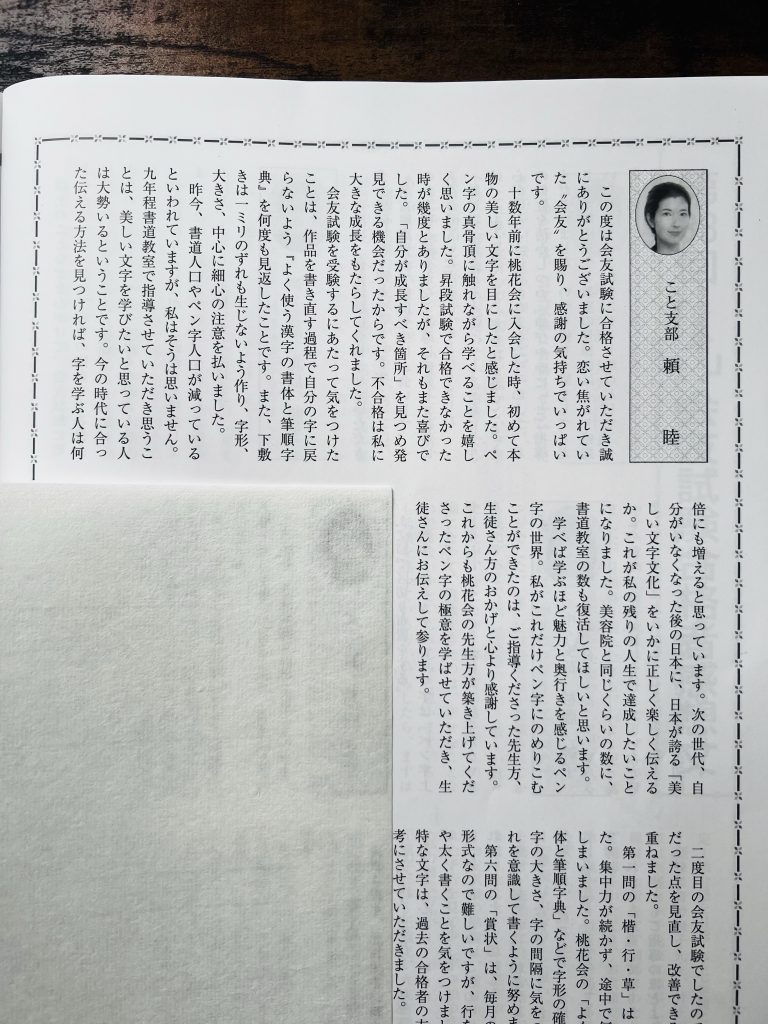 こと支部　頼　睦
この度は会友試験に合格させていただき誠
にありがとうございました。恋い焦がれてい
た〝会友〟を賜り、感謝の気持ちでいっぱい
です。
十数年前に桃花会に入会した時、初めて本
物の美しい文字を目にしたと感じました。ペ
ン字の真骨頂に触れながら学べることを嬉し
く思いました。昇段試験で合格できなかった
時が幾度とありましたが、それもまた喜びで
した。「自分が成長すべき箇所」を見つめ発
見できる機会だったからです。不合格は私に
大きな成長をもたらしてくれました。
会友試験を受験するにあたって気をつけた
ことは、作品を書き直す過程で自分の字に戻
らないよう『よく使う漢字の書体と筆順字
典』を何度も見返したことです。また、下敷
きは一ミリのずれも生じないよう作り、字形、
大きさ、中心に細心の注意を払いました。
昨今、書道人口やペン字人口が減っている
といわれていますが、私はそうは思いません。
九年程書道教室で指導させていただき思うこ
とは、美しい文字を学びたいと思っている人
は大勢いるということです。今の時代に合っ
た伝える方法を見つければ、字を学ぶ人は何
倍にも増えると思っています。次の世代、自
分がいなくなった後の日本に、日本が誇る「美
しい文字文化」をいかに正しく楽しく伝える
か。これが私の残りの人生で達成したいこと
になりました。美容院と同じくらいの数に、
書道教室の数も復活してほしいと思います。
学べば学ぶほど魅力と奥行きを感じるペン
字の世界。私がこれだけペン字にのめりこむ
ことができたのは、ご指導くださった先生方、
生徒さん方のおかげと心より感謝しています。
これからも桃花会の先生方が築き上げてくだ
さったペン字の極意を学ばせていただき、生
徒さんにお伝えして参ります。
二度目の会友試験でしたの
だった点を見直し、改善でき
重ねました。
第一問の「楷・行・草」は
た。集中力が続かず、途中で
しまいました。桃花会の「よ
体と筆順字典」などで字形の確
字の大きさ、字の間隔に気をつ
れを意識して書くように努めま
第六問の「賞状」は、毎月の
形式なので難しいですが、行を
や太く書くことを気をつけまし
特な文字は、過去の合格者の
考にさせていただきました。